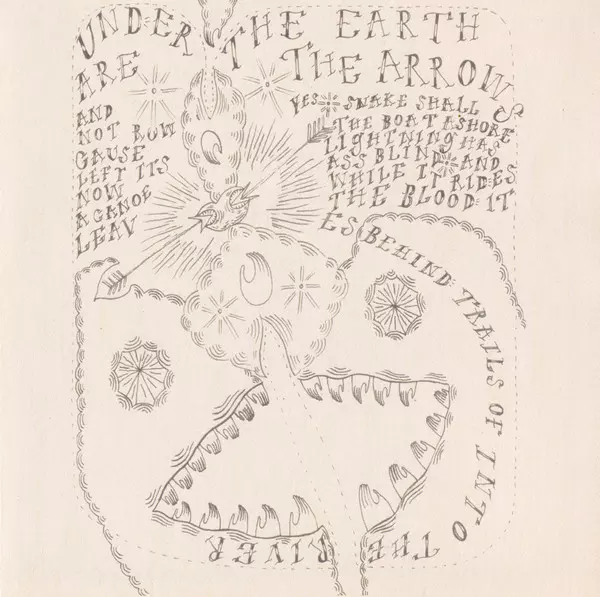 UNDER THE EARTH
ARE THE ARROWS
AND
NOT ROW
CAUSE
LEFT ITS
NOW
A CANOE
LEAV
YES SNAKE SHALL
THE BOAT ASHORE
LIGHTNING HAS
ASS BLIND AND
WHILE IT RIDES
THE BLOOD: IT
ES BEHIND: TRAILS OF INTO
THE RIVER